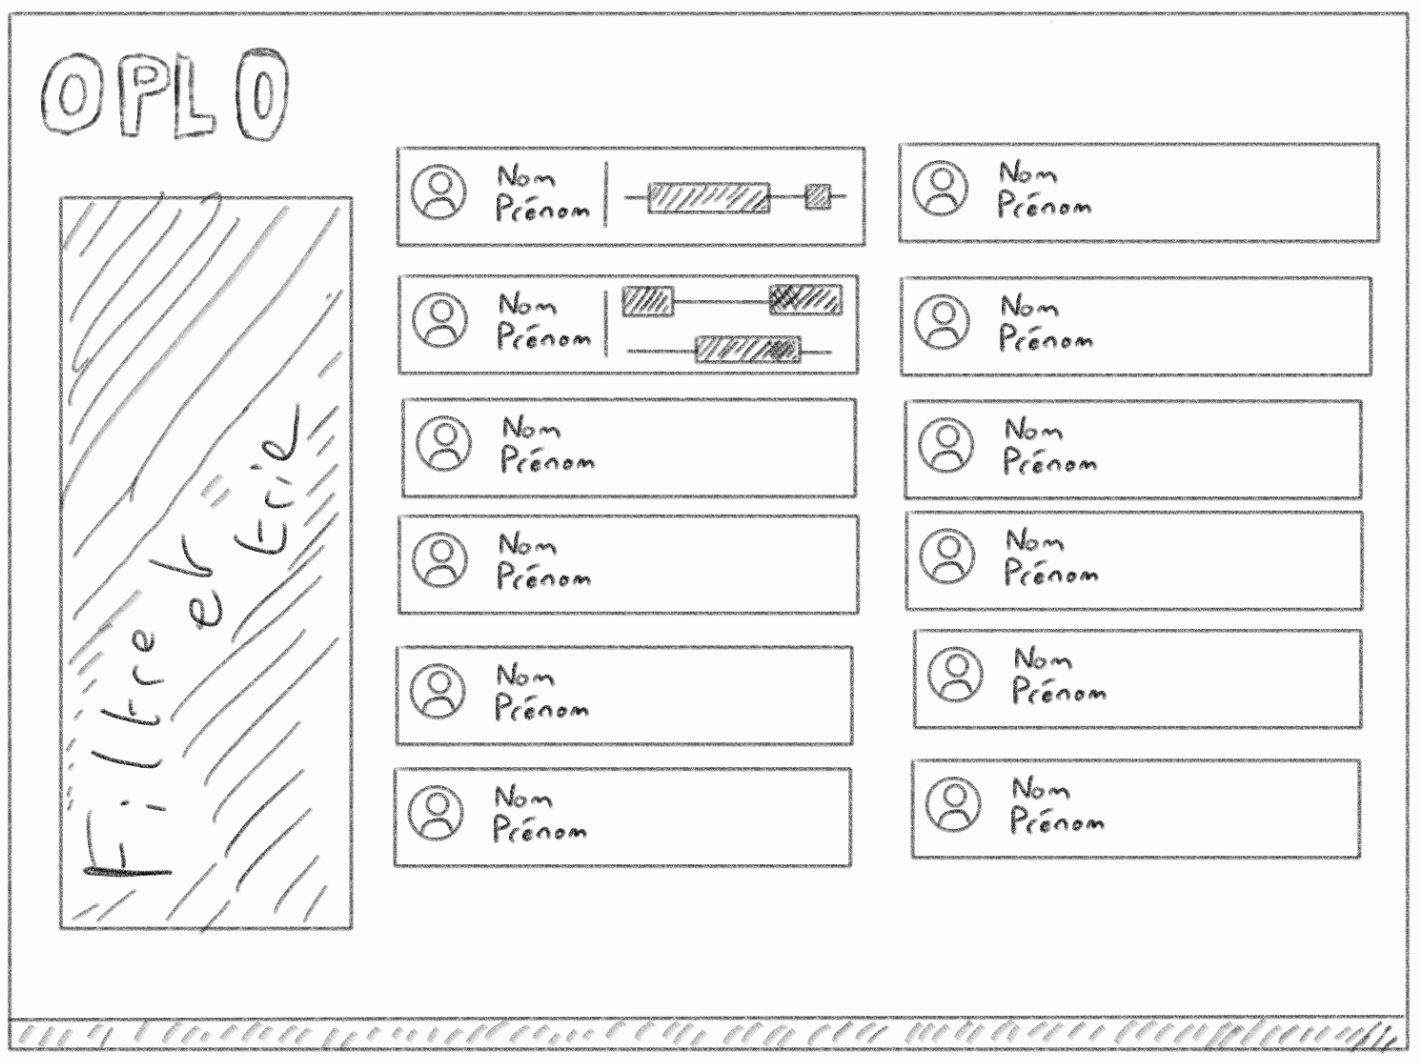 OPLO
Filtre et trie
Nom
Prénom
Nom
Prénom
Nom
Prénom
Nom
Prénom
Nom
Prénom
Nom
Prénom
Nom
Prénom
Nom
Prénom
Nom
Prénom
Nom
Prénom
Nom
Prénom
Nom
Prénom